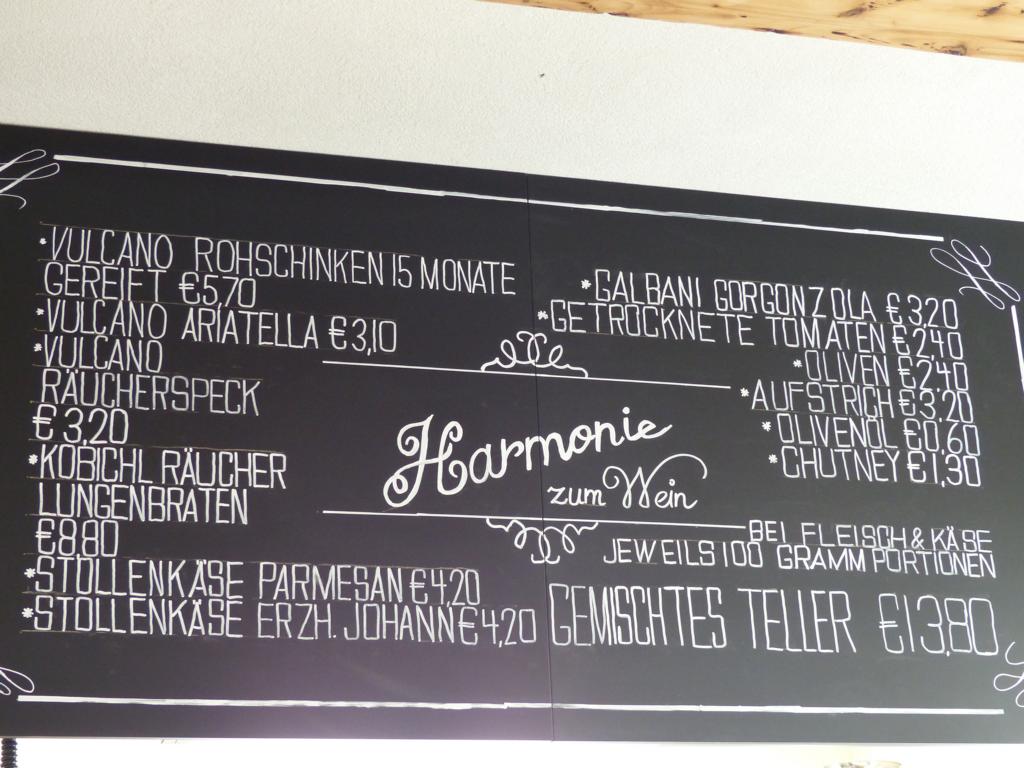 *VULCANO ROHSCHINKEN 15 MONATE
GEREIFT €5,70
*VULCANO ARIATELLA €3,10
*VULCANO
RÄUCHERSPECK
€3,20
*KOBICHL RÄUCHER
LUNGENBRATEN
€8.80
*STOLLENKÄSE PARMESAN €4,20
*STOLLENKÄSE ERZH. JOHANN €4,20
Harmonie
zum Wein
*GALBANI GORGONZOLA €3,20
*GETROCKNETE TOMATEN €2,40
*OLIVEN €2,40
*AUFSTRICH €3,20
*OLIVENÖL €0,60
*CHUTNEY €1,30
BEI FLEISCH & KÄSE
JEWEILS 100 GRAMM PORTIONEN
GEMISCHTES TELLER €13,80